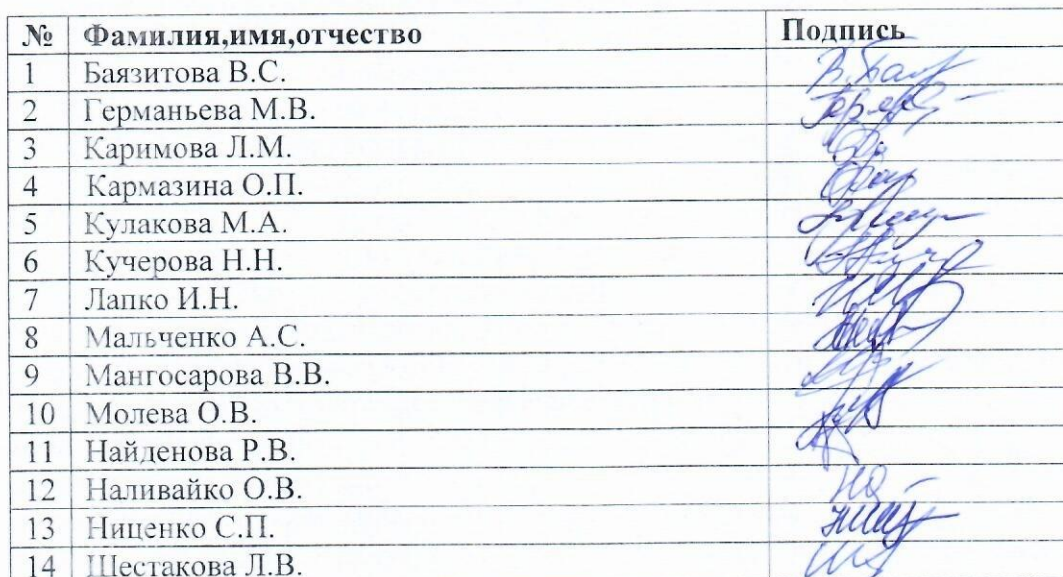 № Фамилия,имя,отчество Подпись
1 Баязитова В.С.
2 Германьева М.В.
3 Каримова Л.М.
4 Кармазина О.П.
5 Кулакова М.А.
6 Кучерова Н.Н.
7 Лапко И.Н.
8 Мальченко А.С.
9 Мангосарова В.В.
10 Молева О.В.
11 Найденова Р.В.
12 Наливайко О.В.
13 Ниценко С.П.
14 Шестакова Л.В.